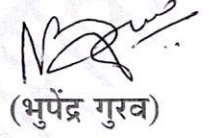 (भुपेंद्र गुरव)